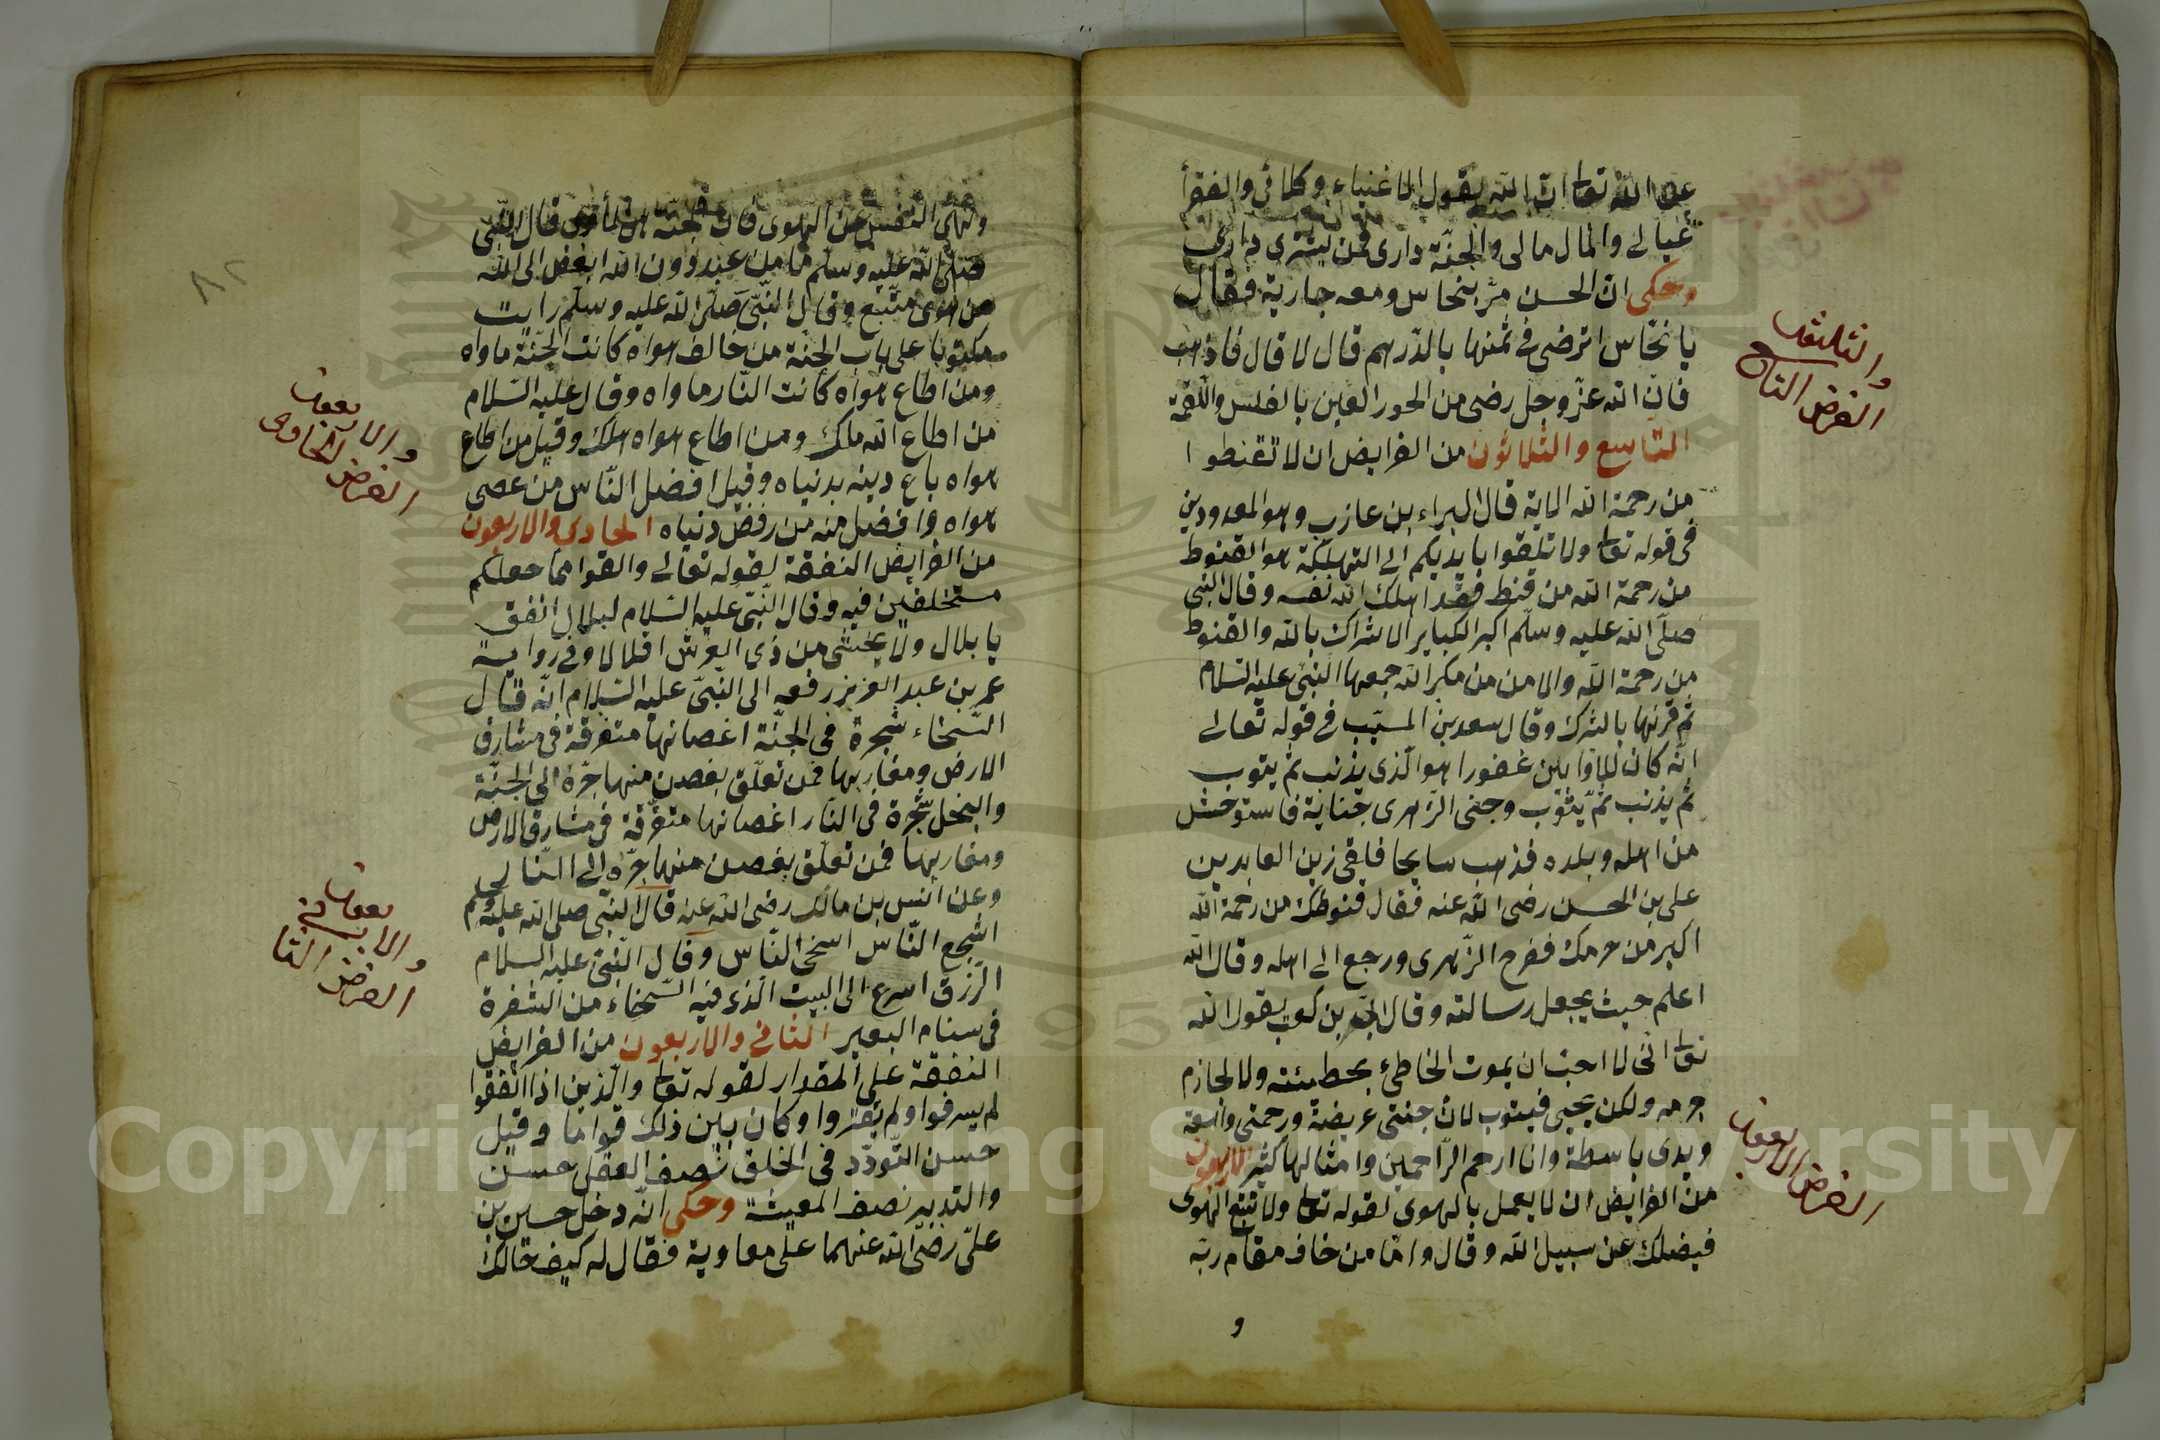 عن الله تعا ان الله يقول الاغنياء وكلائى والفقرأ
عيالى والمال مالى والجنّة دارى فمن يشترى دارى
وحكى ان الحسن مرّ بنخاس ومعه جارية فقال
يا نخّاس اترضى فى ثمنها بالدّرهم قال لا قال فاذهب
فانّ الله عزّ وجل رضى من الحور العين بالفلس واللقمة
التاسع والثلاثون من الفرايض ان لا تقنطوا
من رحمة الله الاية قال البراء بن عازب وهو المعدودين
فى قوله تعا ولا تلقوا بايديكم الى التهلكة هو القنوط
من رحمة الله من قنط فقد اهلك الله نفسه وقال النبى
صلّى الله عليه وسلّم اكبر الكباير الاشراك بالله والقنوط
من رحمة الله والامن من مكر الله جمعها النبىّ عليه السّلام
ثم قرنها بالشرك وقال سعد بن المسيّب فى قوله تعالى
انّه كان للاوّابين غفورا هو الّذى يذنب ثم يتوب
ثم يذنب ثمّ يتوب وجنى الزهرى جناية فاستوحش
من اهله وبلده فذهب سايحا فلقى زين العابدين
على بن الحسن رضى الله عنه فقال قنوطك من رحمة الله
اكبر من جرمك ففرح الزّهرى ورجع الى اهله وقال الله
اعلم حيث يجعل رسالته وقال بن كعب يقول الله
تعا انّى لا احبّ ان يموت الخاطئ بخطيئته ولا الجازم
جرمه ولكن يحيى فيتوب لانّ جنتى عريضة ورحمتى واسعة
ويدى باسطة وانا ارحم الرّاحمين وامثالها كثير الاربعون
من الفرايض ان لا يعمل بالهوى لقوله تعا ولا تتبع الهوى
فيضلك عن سبيل الله وقال وامّا من خاف مقام ربّه
و
والثلثون
الفرض التاسع
الفرض الاربعون
ونهى النفس عن الهوى فان الجنّة هى المأوى قال النّبىّ
صلى الله عليه وسلّم ما من عبد دون الله ابغض الى الله
من هوى متّبع وقال النّبىّ صلّى الله عليه وسلّم رايت
مكتوبا على باب الجنّة من خالف هواه كانت الجنّة ماواه
ومن اطاع هواه كانت النّار ماواه وقال عليه السّلام
من اطاع الله ملك ومن اطاع هواه هلك وقيل من اطاع
هواه باع دينه بدنياه وقيل افضل النّاس من عصى
هواه وافضل منه من رفض دنياه الحادى والاربعون
من الفرايض النفقة لقوله تعالى وانفقوا مما جعلكم
مستخلفين فيه وقال النّبىّ عليه السّلام لبلال انفق
يا بلال ولا يخشى من ذى العرش اقلالا وفى رواية
عمر بن عبد العزيز رفعه الى النّبىّ عليه السّلام انّه قال
السّخاء شجرة فى الجنّة اغصانها متفرقة فى مشارق
الارض ومغاربها فمن تعلّق بغصن منها جرّه الى الجنّة
والبخل شجرة فى النّار اغصانها متفرّقة فى مشارق الارض
ومغاربها فمن تعلّق بغصن منها جرّه الى النّار
وعن انس بن مالك رضى الله عنه قال النّبىّ صلى الله عليه وسلم
اشجع النّاس اسخى النّاس وقال النّبىّ عليه السلام
الرّزق اسرع الى البيت الّذى فيه السّخاء من الشفرة
فى سنام البعير الثانى والاربعون من الفرايض
النفقة على المقدار لقوله تعا والّذين اذا انفقوا
لم يسرفوا ولم يقتروا وكان بين ذلك قواما وقيل
حسن التّودّد فى الخلق نصف العقل حسن
والتدبير نصف المعيشة وحكى انّه دخل حسين بن
علىّ رضى الله عنهما على معاوية فقال له كيف حالك
٨٢
والاربعون
الفرض الحادى
والاربعون
الفرض الثانى
Copyright © King Saud University
1957